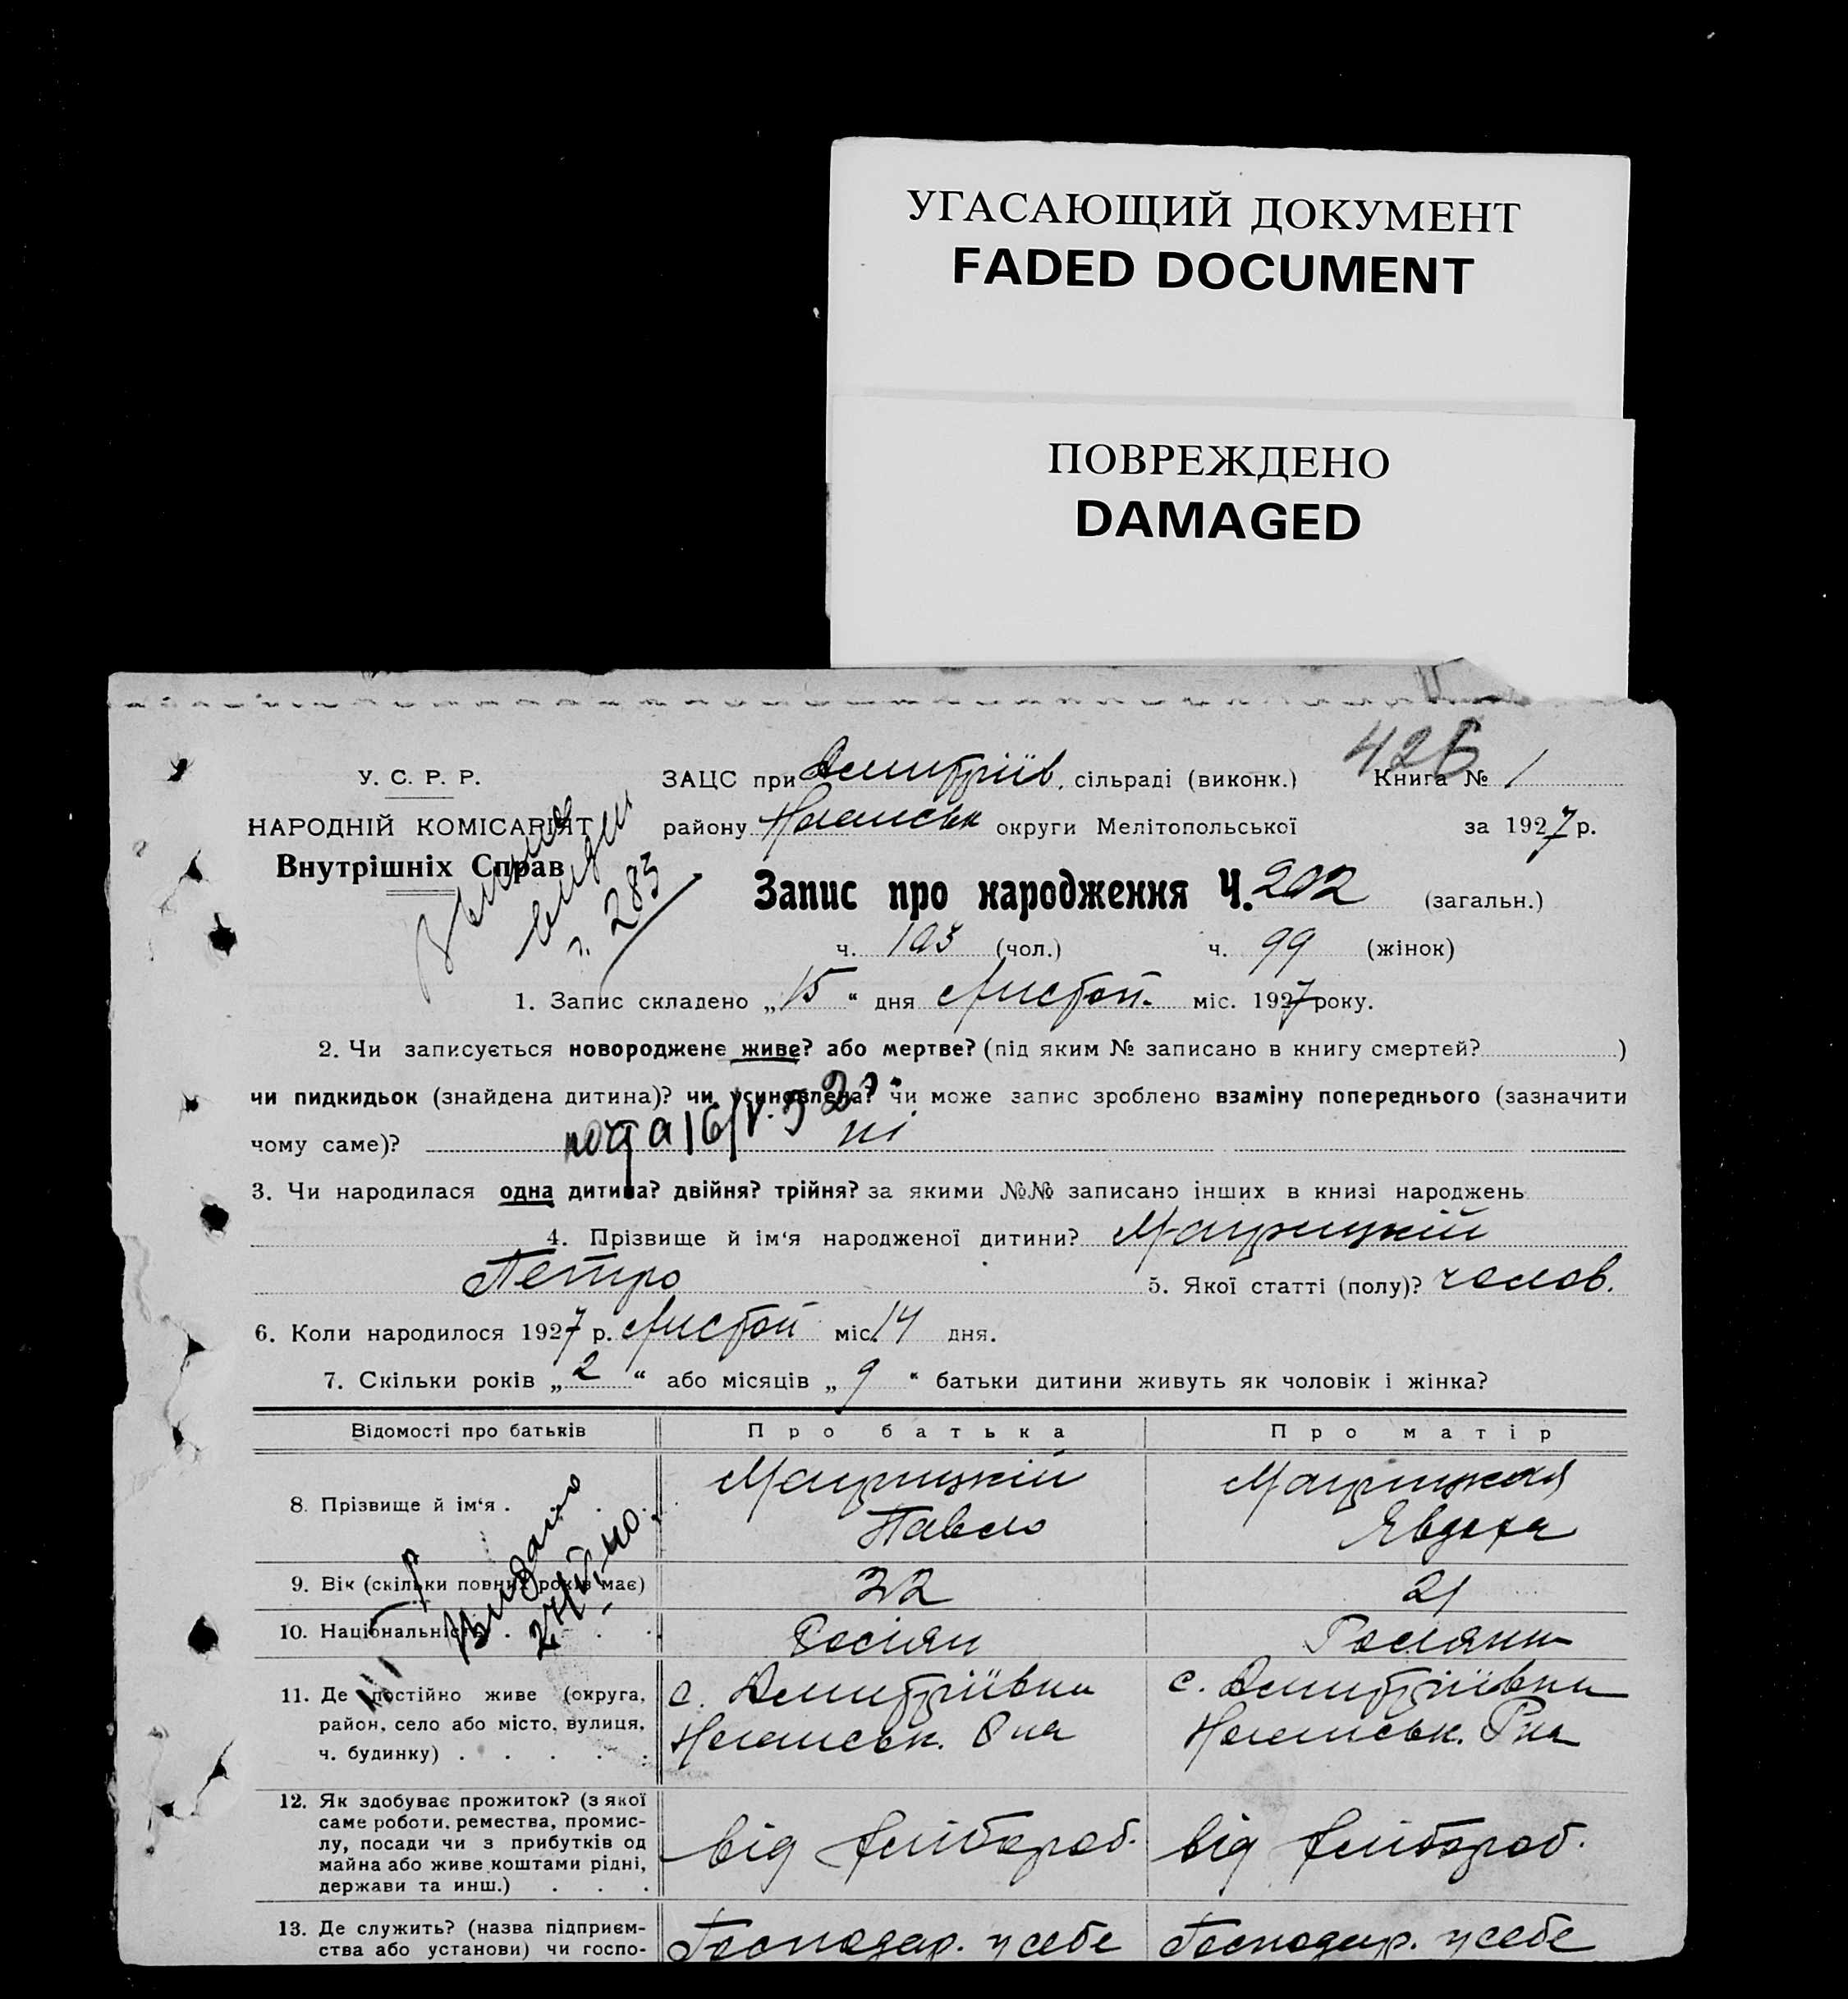 УГАСАЮЩИЙ ДОКУМЕНТ
FADED DOCUMENT
ПОВРЕЖДЕНО
DAMAGED
426
У. С. Р. Р.
НАРОДНІЙ КОМІСАРІЯТ
Внутрішніх Справ
283
ЗАЦС при Дмитріїв. сільраді (виконк.) Книга № 1
району округи Мелітопольської за 1927 р.
Запис про народження Ч. 202 (загальн.)
ч. 103 (чол.) ч. 99 (жінок)
1. Запис складено „15“ дня Листоп. міс. 1927 року.
2. Чи записується новороджене живе? або мертве? (під яким № записано в книгу смертей? )
чи пидкидьок (знайдена дитина)? чи усиновлена? чи може запис зроблено взаміну попереднього (зазначити
чому саме)? ні
3. Чи народилася одна дитина? двійня? трійня? за якими №№ записано інших в книзі народжень
4. Прізвище й ім‘я народженої дитини? Маприцкий
Петро 5. Якої статті (полу)? чолов.
6. Коли народилося 1927 р. Листоп міс. 14 дня.
7. Скільки років „2“ або місяців „9“ батьки дитини живуть як чоловік і жінка?
Відомості про батьків Про батька Про матір
8. Прізвище й ім‘я . Маприцкий Маприцкая
Павло Явдоха
9. Вік (скільки повних років має) 22 21
10. Національність Росіян Росіянк
11. Де постійно живе (округа, с. Дмитріївки с. Дмитріївки
район, село або місто, вулиця, Р-на Р-на
ч. будинку)
Видано
12. Як здобуває прожиток? (з якої
саме роботи, ремества, промис-
лу, посади чи з прибутків од
майна або живе коштами рідні, від хлібороб. від хлібороб.
держави та инш.)
13. Де служить? (назва підприєм-
ства або установи) чи госпо- Господар. у себе Господар. у себе